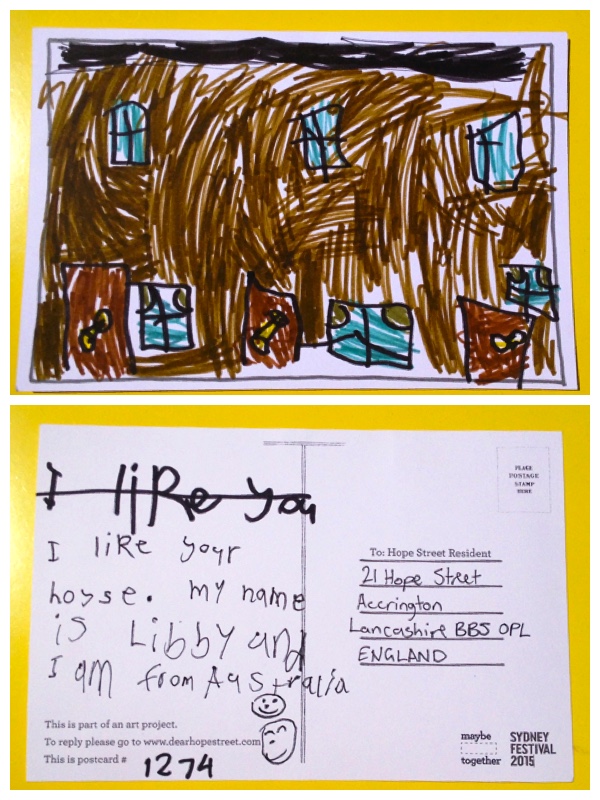 I like you
I like your
hoyse. my name
is Libby and
I am from Aystralia
This is part of an art project.
To reply please go to www.dearhopestreet.com
This is postcard # 1274
PLACE
POSTAGE
STAMP
HERE
To: Hope Street Resident
21 Hope Street
Accrington
Lancashire BB5 OPL
ENGLAND
maybe
together
SYDNEY
FESTIVAL
2015